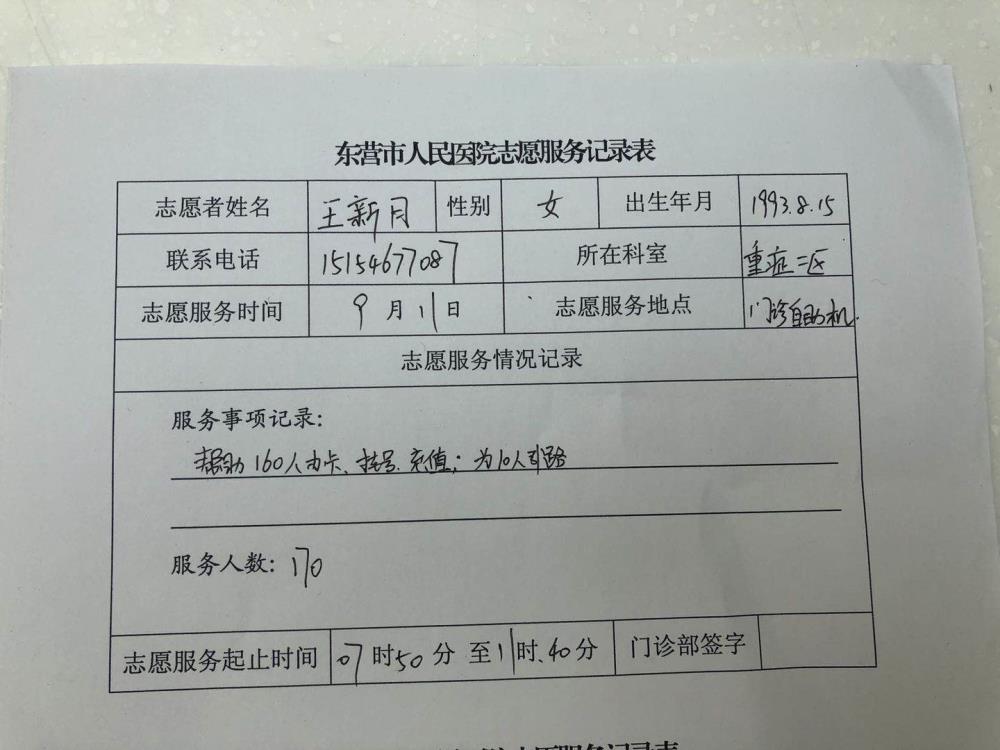 东营市人民医院志愿服务记录表
志愿者姓名 王新月 性别 女 出生年月 1993.8.15
联系电话 15154677087 所在科室 重症二区
志愿服务时间 9月11日 志愿服务地点 门诊自助机
志愿服务情况记录
服务事项记录:
帮助160人办卡、挂号.充值;为10人引路
服务人数:170
志愿服务起止时间 07时50分至11时.40分 门诊部签字
医院志愿服务记录表